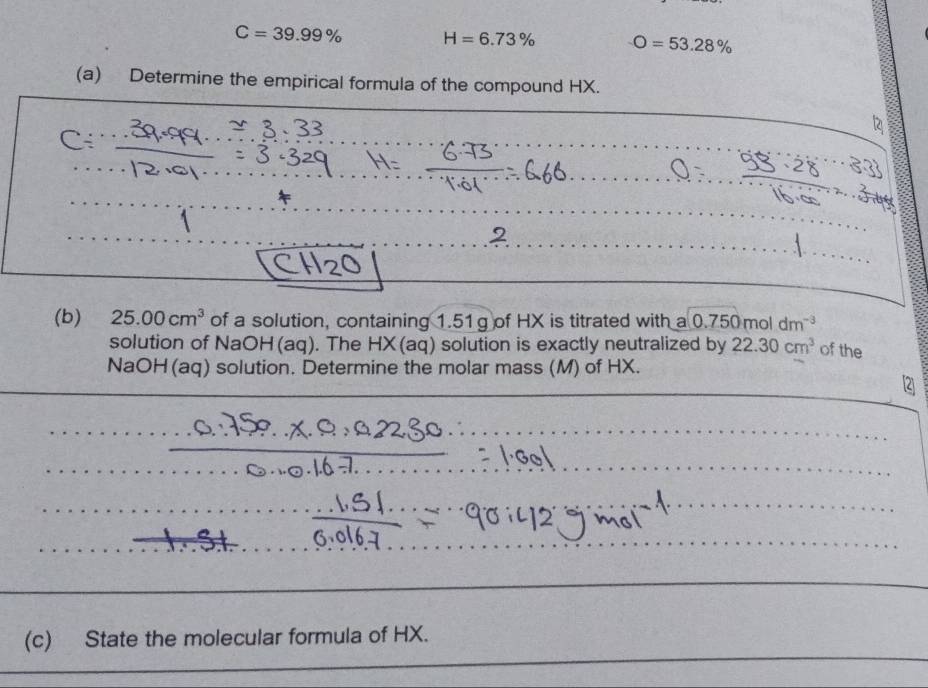 C = 39.99 % H = 6.73 % O = 53.28 %
(a) Determine the empirical formula of the compound HX.
[2]
C = 39.99 / 12.01 ≃ 3.33 = 3.329 H = 6.73 / 1.01 = 6.66 O = 53.28 / 16.00 = 3.33
1 2 1
CH2O
(b) 25.00 cm³ of a solution, containing 1.51 g of HX is titrated with a 0.750 mol dm⁻³
solution of NaOH (aq). The HX (aq) solution is exactly neutralized by 22.30 cm³ of the
NaOH (aq) solution. Determine the molar mass (M) of HX.
[2]
0.750 x 0.02230 / 0.0167 = 1.001
1.51 / 0.0167 = 90.42 g mol⁻¹
1.51
(c) State the molecular formula of HX.